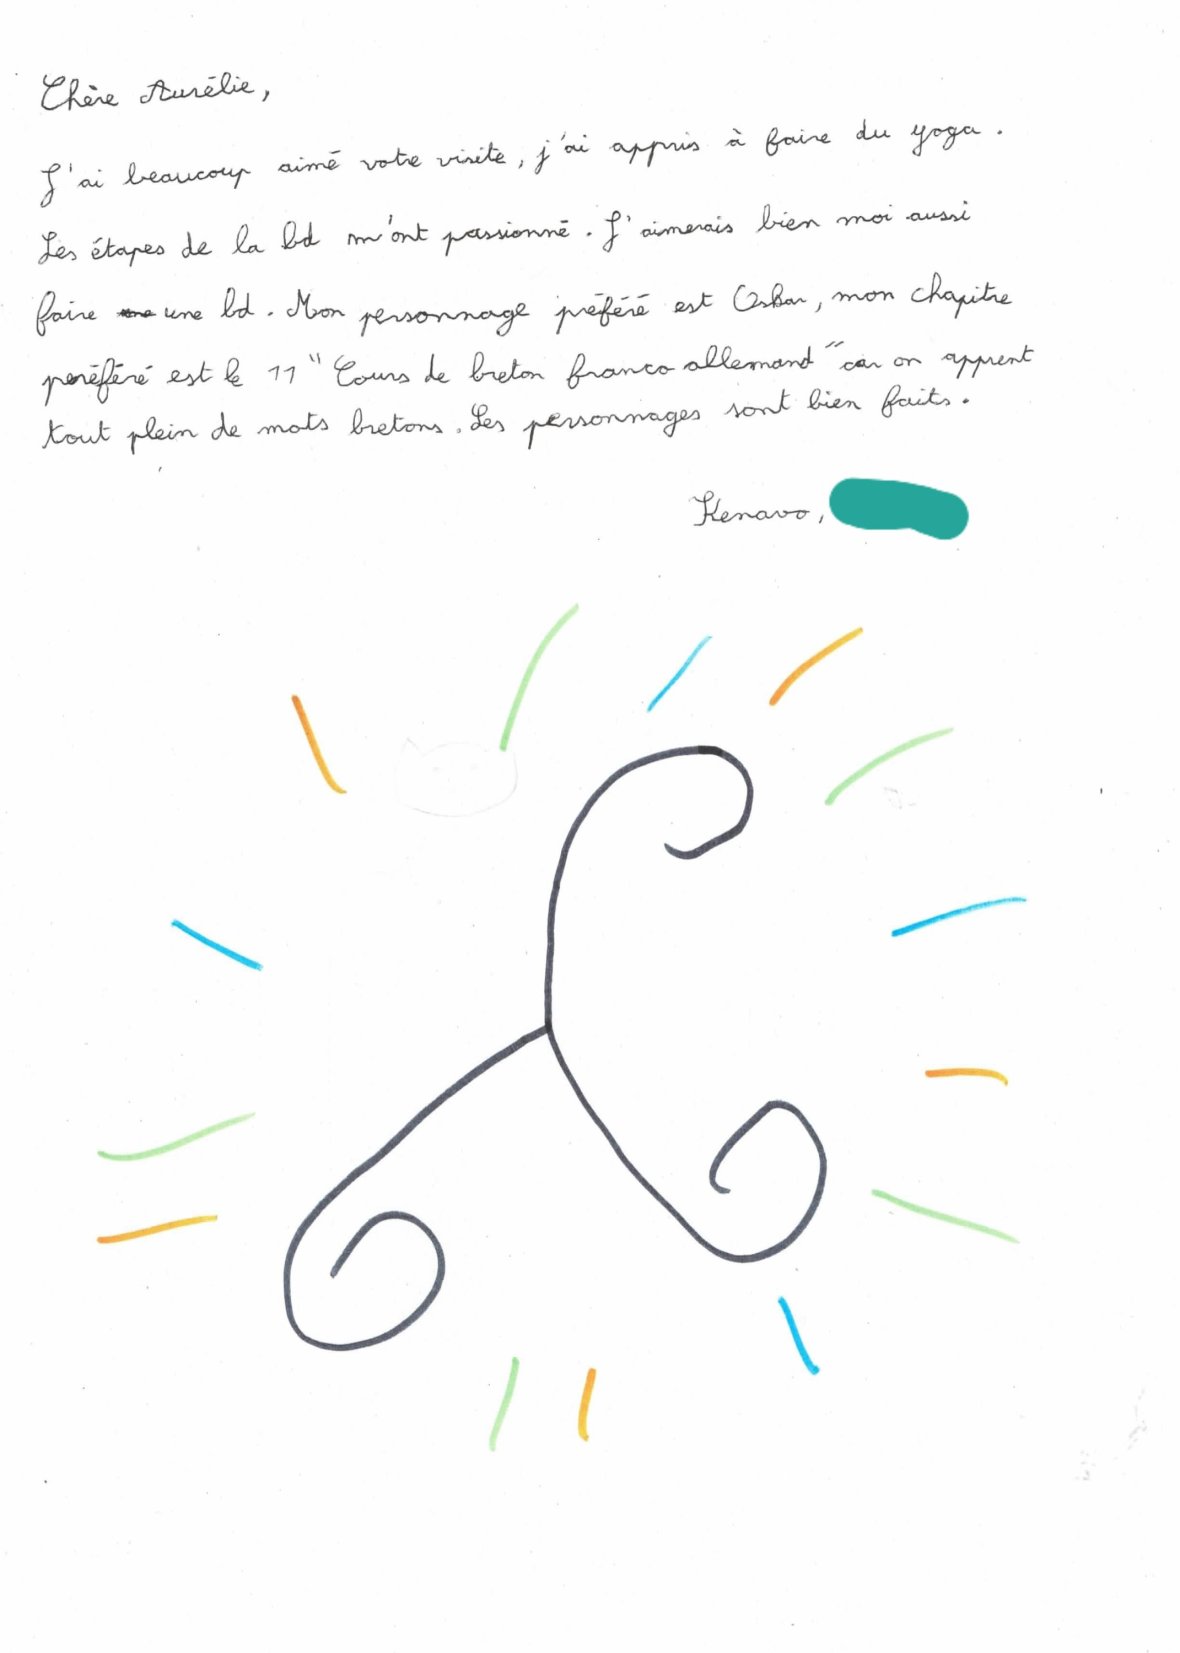 Chère Aurélie,
J'ai beaucoup aimé votre visite, j'ai appris à faire du yoga.
Les étapes de la bd m'ont passionné. J'aimerais bien moi aussi
faire une bd. Mon personnage préféré est Oskar, mon chapitre
preféré est le 11 "Cours de breton franco allemand" car on apprent
tout plein de mots bretons. Les personnages sont bien faits.
Kenavo,